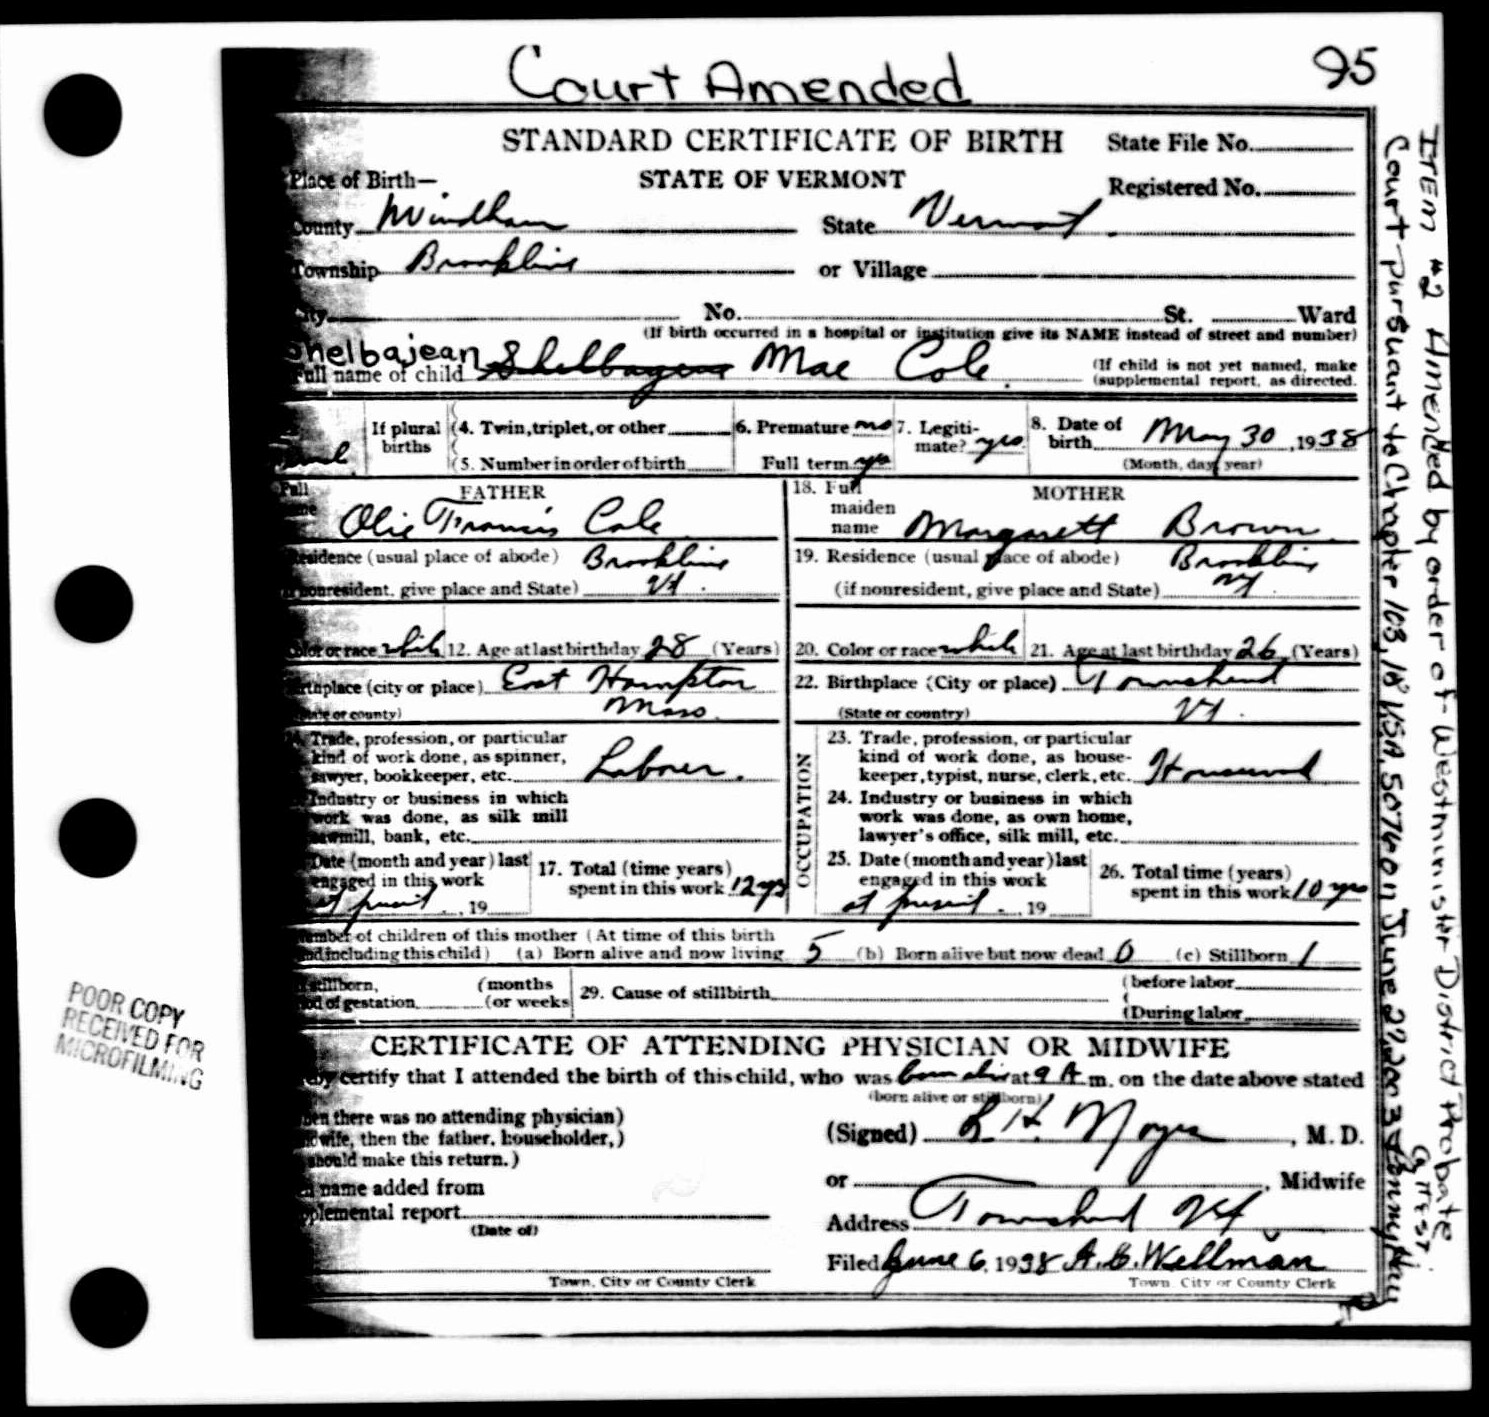 Court Amended
95
STANDARD CERTIFICATE OF BIRTH
State File No.
Place of Birth—
STATE OF VERMONT
Registered No.
County Windham State Vermont
Township Brookline or Village
City No. St. Ward
(If birth occurred in a hospital or institution give its NAME instead of street and number)
Shelbajean
Full name of child Mae Cole
(If child is not yet named, make
supplemental report, as directed.
If plural births
4. Twin, triplet, or other
5. Number in order of birth
6. Premature no
Full term yes
7. Legiti-
mate? yes
8. Date of
birth May 30, 1938
(Month, day, year)
FATHER
Full name Olie Francis Cole
Residence (usual place of abode) Brookline
nonresident, give place and State) Vt.
Color or race white 12. Age at last birthday 28 (Years)
Birthplace (city or place) East Hampton
(State or county) Mass.
Trade, profession, or particular
kind of work done, as spinner,
sawyer, bookkeeper, etc. Laborer.
Industry or business in which
work was done, as silk mill
sawmill, bank, etc.
Date (month and year) last
engaged in this work
at present, 19
17. Total (time years)
spent in this work 12 yrs
MOTHER
18. Full
maiden
name Margarett Brown
19. Residence (usual place of abode) Brookline
(if nonresident, give place and State) Vt.
20. Color or race white 21. Age at last birthday 26 (Years)
22. Birthplace (City or place) Townshend
(State or country) Vt.
OCCUPATION
23. Trade, profession, or particular
kind of work done, as house-
keeper, typist, nurse, clerk, etc.
24. Industry or business in which
work was done, as own home,
lawyer's office, silk mill, etc.
25. Date (month and year) last
engaged in this work
at present, 19
26. Total time (years)
spent in this work 10 yrs
Number of children of this mother (At time of this birth
and including this child) (a) Born alive and now living 5 (b) Born alive but now dead 0 (c) Stillborn 1
stillborn, (months
of gestation (or weeks
29. Cause of stillbirth
(before labor
(During labor
CERTIFICATE OF ATTENDING PHYSICIAN OR MIDWIFE
certify that I attended the birth of this child, who was born alive at 9 A m. on the date above stated
(born alive or stillborn)
there was no attending physician)
wife, then the father, householder,)
should make this return.)
(Signed) M.D.
name added from
supplemental report
(Date of)
or Midwife
Address Townshend Vt
Filed June 6, 1938 A.G. Wellman
Town, City or County Clerk
Town City or County Clerk
POOR COPY
RECEIVED FOR
MICROFILMING
ITEM #2 Amended by order of Westminister District Probate
Court pursuant to Chapter 103, 18 VSA, 5076 on June 27, 2003
attest: